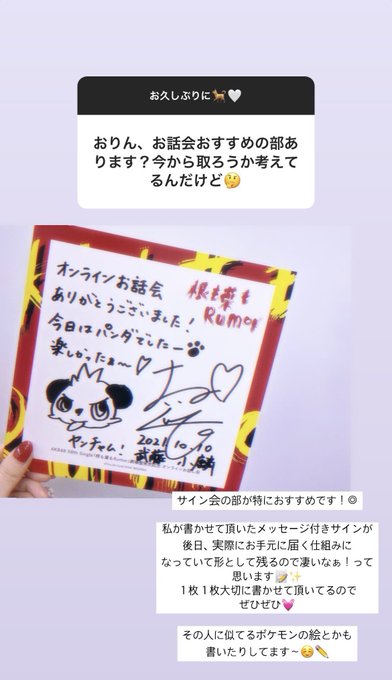 お久しぶりに🐕🤍
おりん、お話会おすすめの部あ
ります？今から取ろうか考えて
るんだけど🤔
オンラインお話会
ありがとうございました！
今日はパンダでしたー🐾
楽しかったぁ〜♡
根も葉も
Rumor
ヤンチャム！
2021.10.10
武藤小麟
サイン会の部が特におすすめです！◎
私が書かせて頂いたメッセージ付きサインが
後日、実際にお手元に届く仕組みに
なっていて形として残るので凄いなぁ！って
思います📝✨
1枚1枚大切に書かせて頂いてるので
ぜひぜひ💓
その人に似てるポケモンの絵とかも
書いたりしてます〜☺️✏️